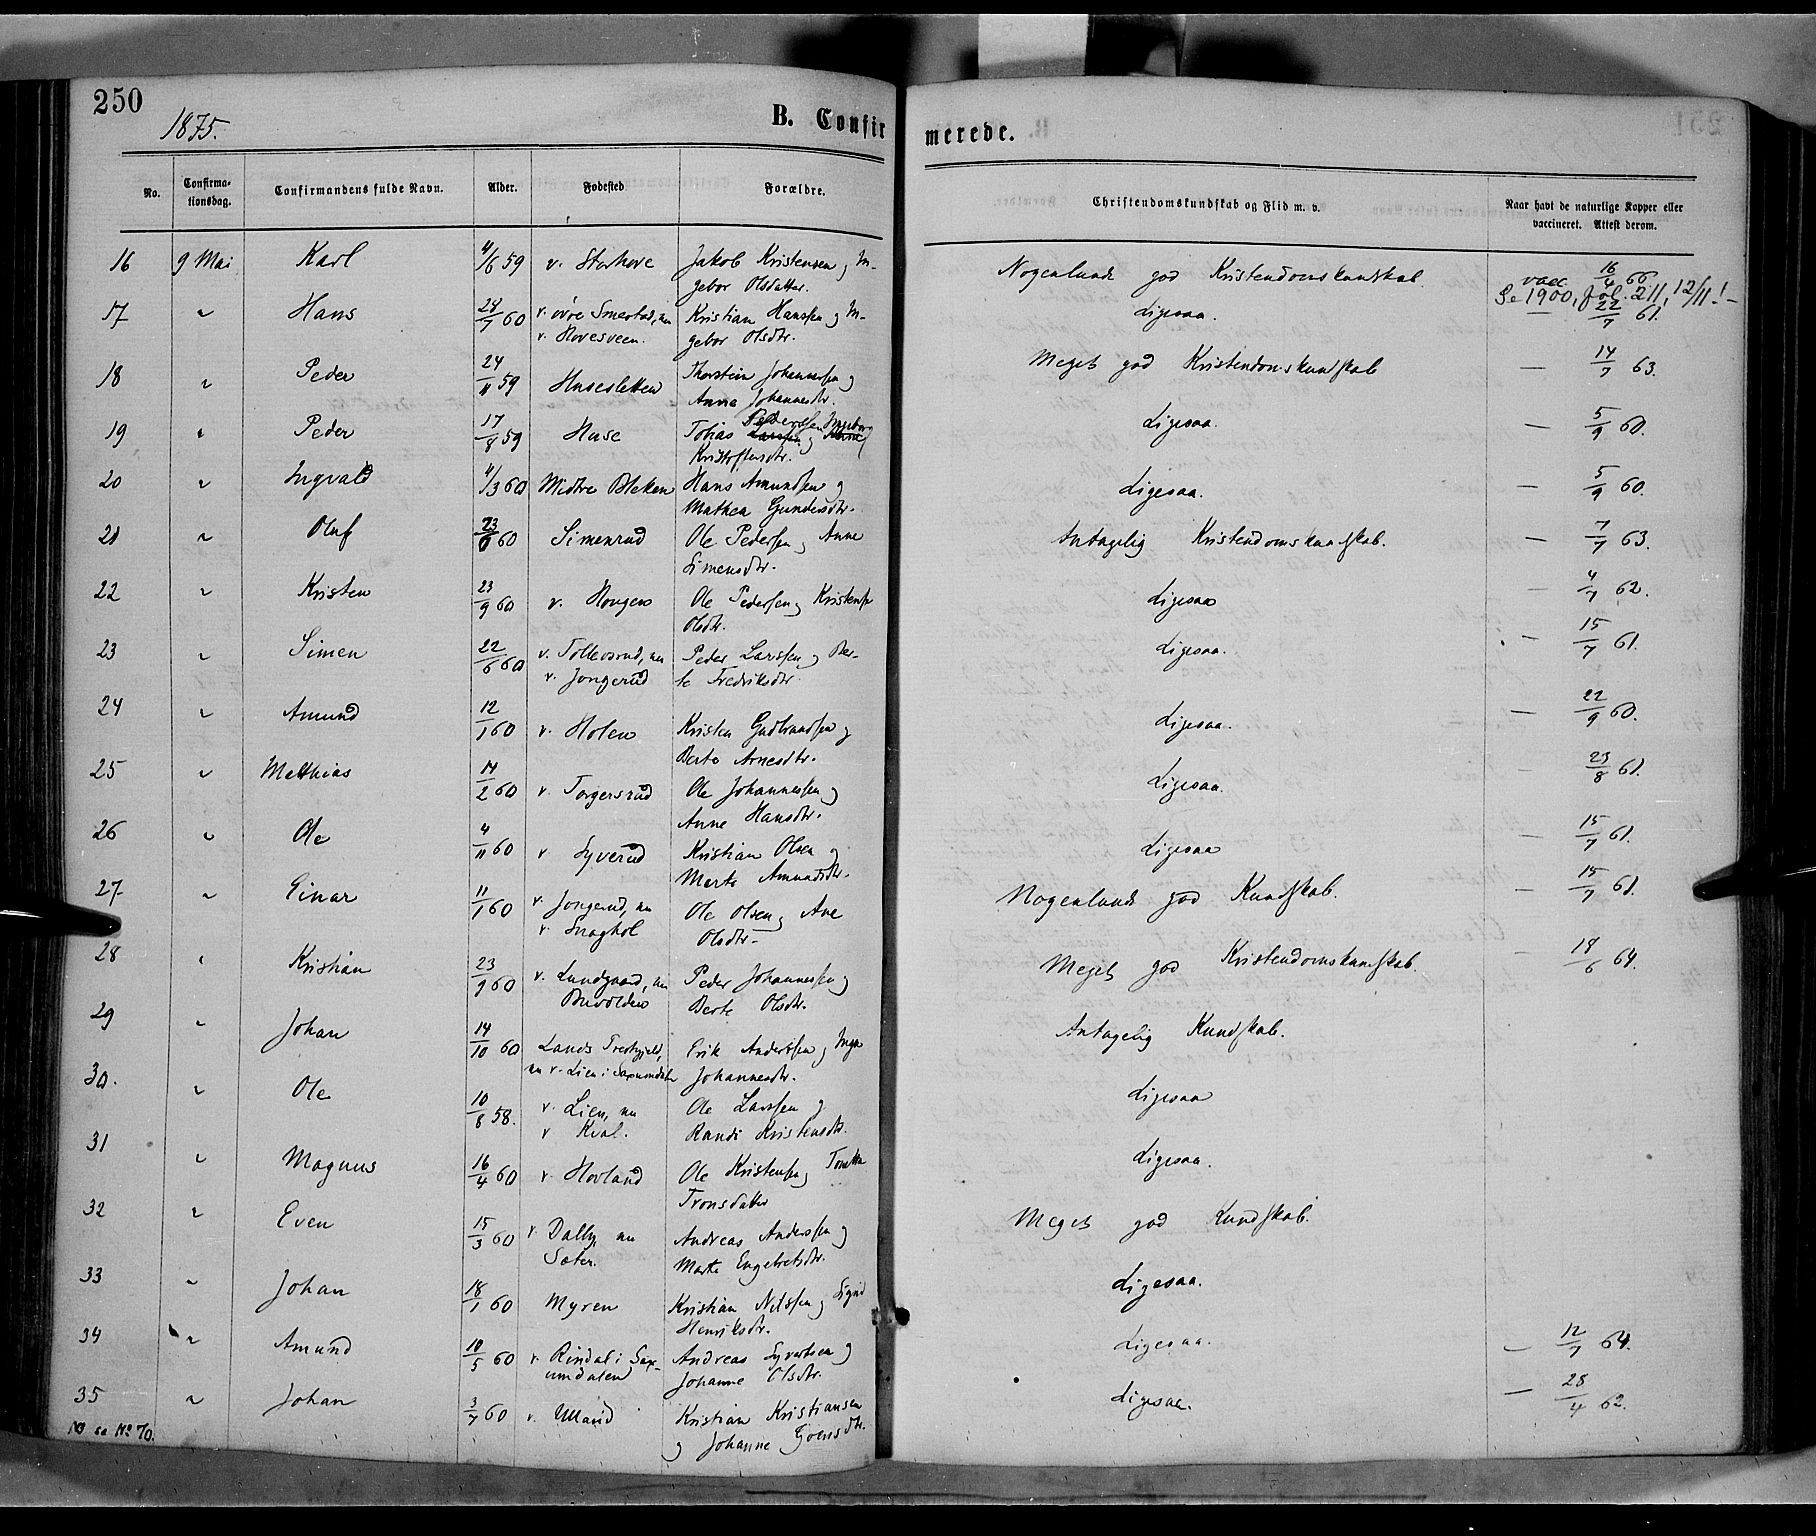 250
1875.
B. Confir
merede.
No. Confirma-tionsdag. Confirmandens fulde Navn. Alder. Fødested Forældre. Christendomskundskab og Flid m. v. Naar havt de naturlige Kopper eller vaccineret. Attest derom.
16 9 Mai Karl 4/6 59 v. Storhove Jakob Kristensen og In- Nogenlunde god Kristendomskundskab. vacc. 16/4 66
gebor Olsdatter. Se 1900, fol. 211, 12/11!-
17 " Hans 24/7 60 v. øvre Smestad, nu Kristian Hanssen og In- Ligesaa. — 22/7 61.
v. Hovesveen. gebor Olsdtr.
18 " Peder 24/11 59 Husesletten Thorstein Johannessen og Meget god Kristendomskundskab — 14/7 63.
Anna Johannesdtr.
19 " Peder 17/8 59 Huse Tobias Pedersen Ingeborg Ligesaa. — 5/9 60.
Kristoffersdtr.
20 " Ingvald 4/3 60 Midtre Bleken Hans Amundsen og Ligesaa. — 5/9 60.
Mathea Gundersdtr.
21 " Oluf 60 Simenrud Ole Pedersen og Anne Antagelig Kristendomskundskab. — 7/7 63.
Simensdtr.
22 " Kristen 23/9 60 v. Hougen Ole Pedersen og Ligesaa — 4/7 62.
Olsdtr.
23 " Simen 22/6 60 v. Tollevsrud, nu Peder Larssen og Ber- Ligesaa. — 15/7 61.
v. Jongerud te Fredriksdtr.
24 " Amund 12/1 60 v. Holen Kristen Gudbrandsen og Ligesaa. — 22/9 60.
Berte Arnesdtr.
25 " Matthias 14/2 60 v. Torgersrud Ole Johannessen og Ligesaa. — 23/8 61.
Anne Hansdtr.
26 " Ole 4/11 60 v Syverud Kristian Olsen og Ligesaa — 15/7 61.
Marte Amundsdtr.
27 " Einar 11/1 60 v. Jongerud, nu Ole Olsen og Ane Nogenlunde god Kundskab. — 15/7 61.
v. Snaghol Olsdtr.
28 " Kristian 23/9 60 v. Lundgaard, nu Peder Johannessen og Meget god Kristendomskundskab. — 18/6 64.
Berte Olsdtr.
29 " Johan 14/10 60 Lands Prestgjeld, Erik Anderssen og Inga Antagelig Kundskab.
nu v. Lien i Saxumdalen Johannesdtr.
30. " Ole 10/8 58. v. Lien, nu Ole Larssen og Ligesaa
v Kval. Randi Kristensdtr.
31 " Magnus 16/4 60 v. Hovland Ole Kristensen og Ligesaa.
Tronsdatter
32 " Even 15/3 60 v Dalby nu Andreas Anderssen og Meget god Kundskab.
Sater. Marte Engebretsdtr.
33 " Johan 18/1 60 Myren Kristian Nilssen og Sigrid Ligesaa.
Henriksdtr.
34 " Amund 10/5 60 v. Rindal i Sax- Andreas Syvertsen og Ligesaa. — 12/7 64.
umdalen Johanne Olsdtr.
35 " Johan 3/7 60 v. Ulland Kristian Kristiansen Ligesaa. — 28/4 62.
NB se No 70. og Johanne Goensdtr.